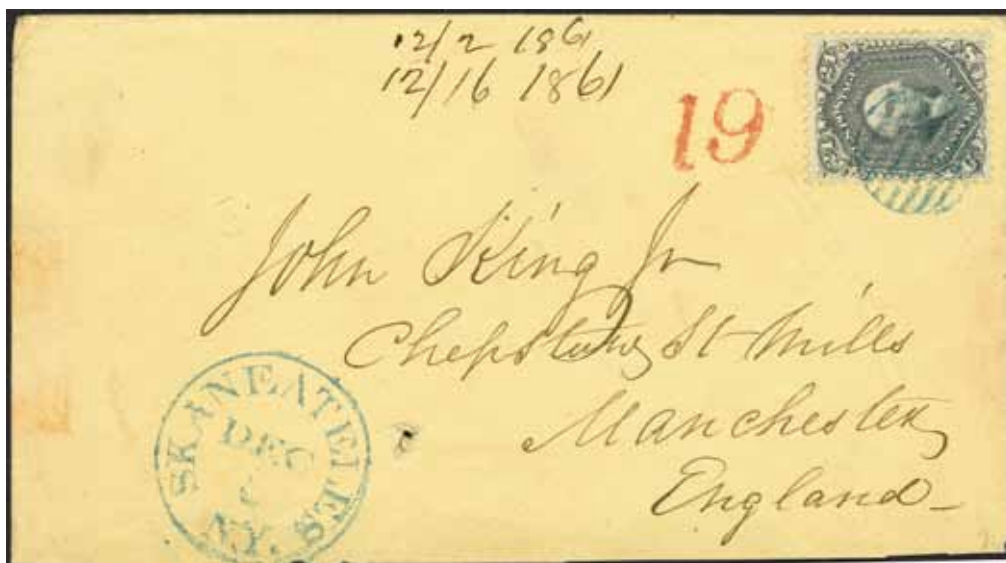 12/2 1861
12/16 1861
19
John King Jr
Chepstow St Mills
Manchester
England
SKANEATELES
DEC
N.Y.